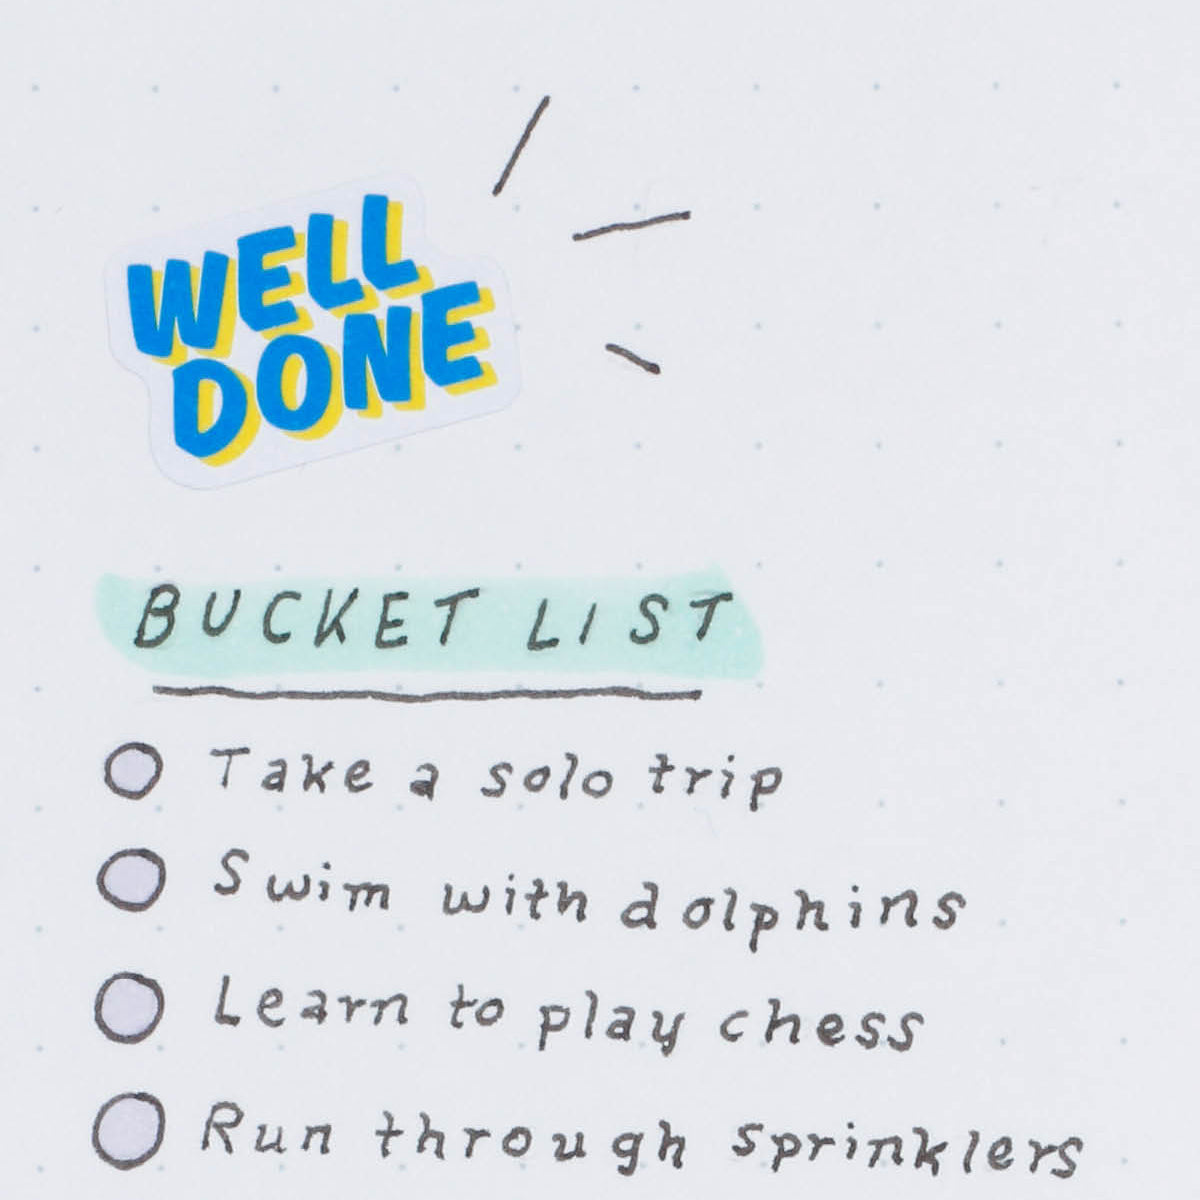 WELL
DONE
BUCKET LIST
Take a solo trip
Swim with dolphins
Learn to play chess
Run through sprinklers